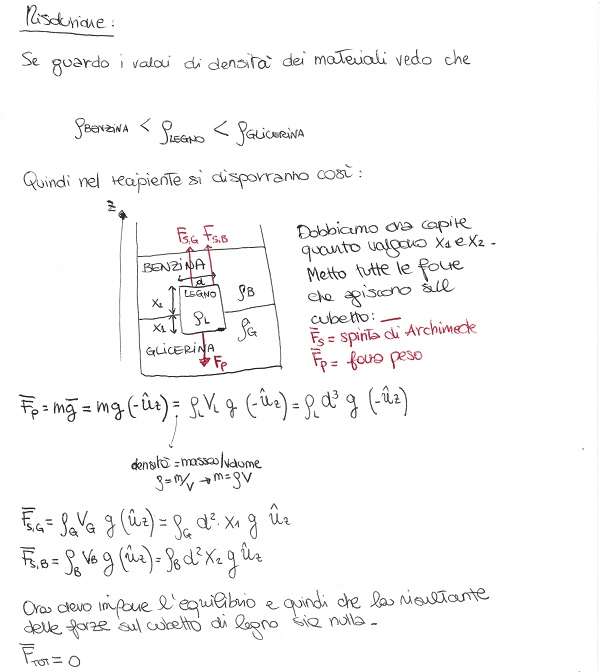 Risoluzione:
Se guardo i valori di densità dei materiali vedo che
ρBENZINA < ρLEGNO < ρGLICERINA
Quindi nel recipiente si disporranno così:
z
F̄S,G F̄S,B
BENZINA
d
LEGNO
ρB
X2
ρL
X1
ρG
GLICERINA
F̄P
Dobbiamo ora capire
quanto valgono X1 e X2.
Metto tutte le forze
che agiscono sul
cubetto:
F̄S = spinta di Archimede
F̄P = forza peso
F̄P = mḡ = mg(-ûz) = ρL VL g (-ûz) = ρL d³ g (-ûz)
densità = massa/volume
ρ = m/V → m = ρV
F̄S,G = ρG VG g (ûz) = ρG d² · X1 g ûz
F̄S,B = ρB VB g (ûz) = ρB d² X2 g ûz
Ora devo imporre l'equilibrio e quindi che la risultante
delle forze sul cubetto di legno sia nulla.
F̄TOT = 0